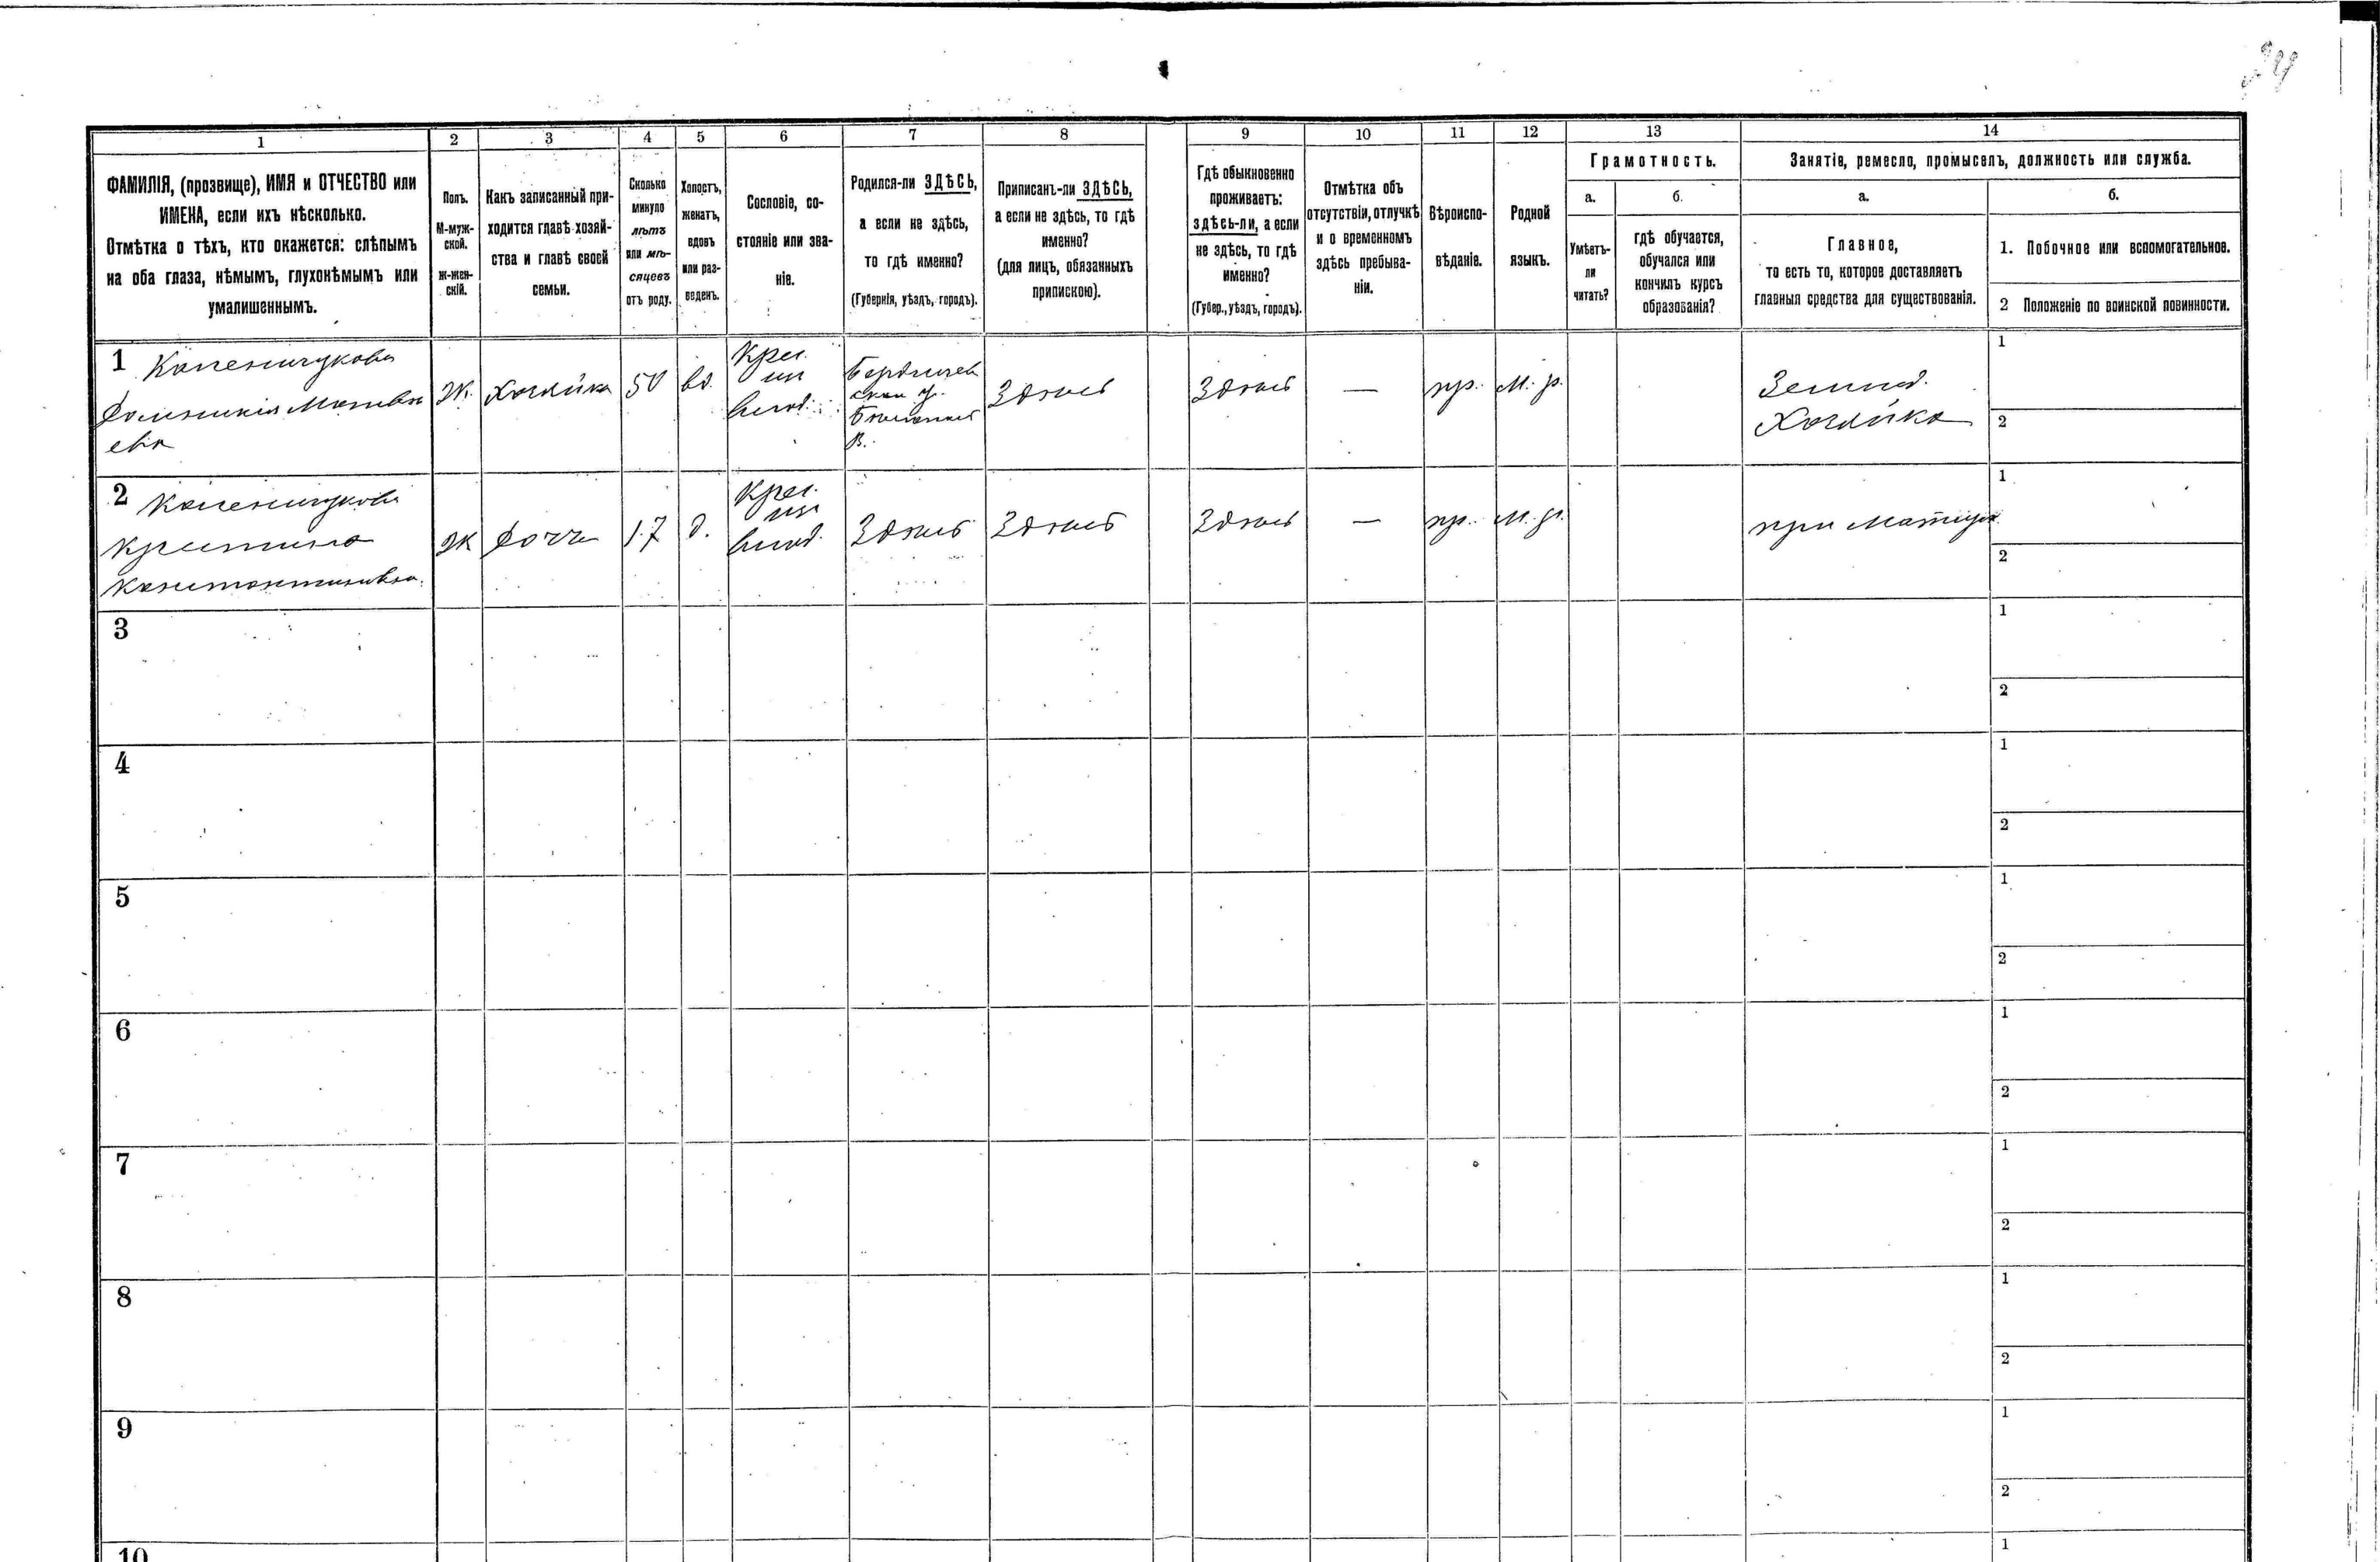 1 2 3 4 5 6 7 8 9 10 11 12 13 14
ФАМИЛІЯ, (прозвище), ИМЯ и ОТЧЕСТВО или
ИМЕНА, если ихъ нѣсколько.
Отмѣтка о тѣхъ, кто окажется: слѣпымъ
на оба глаза, нѣмымъ, глухонѣмымъ или
умалишеннымъ.
Полъ.
М-муж-
ской.
ж-жен-
скій.
Какъ записанный при-
ходится главѣ хозяй-
ства и главѣ своей
семьи.
Сколько
минуло
лѣтъ
или мѣ-
сяцевъ
отъ роду.
Холостъ,
женатъ,
вдовъ
или раз-
веденъ.
Сословіе, со-
стояніе или зва-
ніе.
Родился-ли ЗДѢСЬ,
а если не здѣсь,
то гдѣ именно?
(Губернія, уѣздъ, городъ).
Приписанъ-ли ЗДѢСЬ,
а если не здѣсь, то гдѣ
именно?
(для лицъ, обязанныхъ
припискою).
Гдѣ обыкновенно
проживаетъ:
здѣсь-ли, а если
не здѣсь, то гдѣ
именно?
(Губер., уѣздъ, городъ).
Отмѣтка объ
отсутствіи, отлучкѣ
и о временномъ
здѣсь пребыва-
ніи.
Вѣроиспо-
вѣданіе.
Родной
языкъ.
Грамотность.
а.
Умѣетъ-
ли
читать?
б.
гдѣ обучается,
обучался или
кончилъ курсъ
образованія?
Занятіе, ремесло, промыселъ, должность или служба.
а.
Главное,
то есть то, которое доставляетъ
главныя средства для существованія.
б.
1. Побочное или вспомогательное.
2 Положеніе по воинской повинности.
1
Ж.
Хозяйка
50
вд.
Крес.
Бердичев
Здѣсь
Здѣсь
—
пр.
М. р.
Землед.
Хозяйка
1
2
2
Кристина
Константиновна.
Ж
дочь
17
д.
Крес.
Здѣсь
Здѣсь
Здѣсь
—
пр.
М. р.
при Матери
1
2
3
1
2
4
1
2
5
1
2
6
1
2
7
1
2
8
1
2
9
1
2
10
1